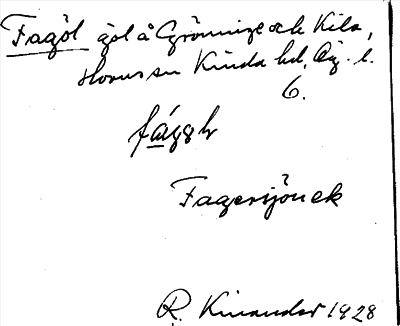 Fagöl göl å Grönninge och Kila,
Horns sn Kinda hd, Ög. l.
6.
fágöl
Fagersjön ek
R. Kinander 1928